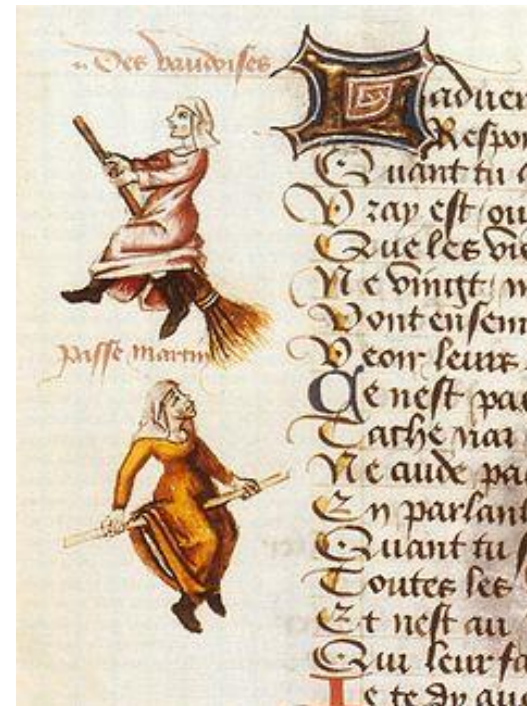 Des vaudoises
passe martin
Laduer
Respon
Quant tu
Vray est / ou
Que les vie
Ne vingt / n
Vont ensem
Veoir leurs
Ce nest pas
Tache par
Ne aude pa
En parlant
Quant tu
Toutes les
Et nest au
Qui leur fa
Je te dy que